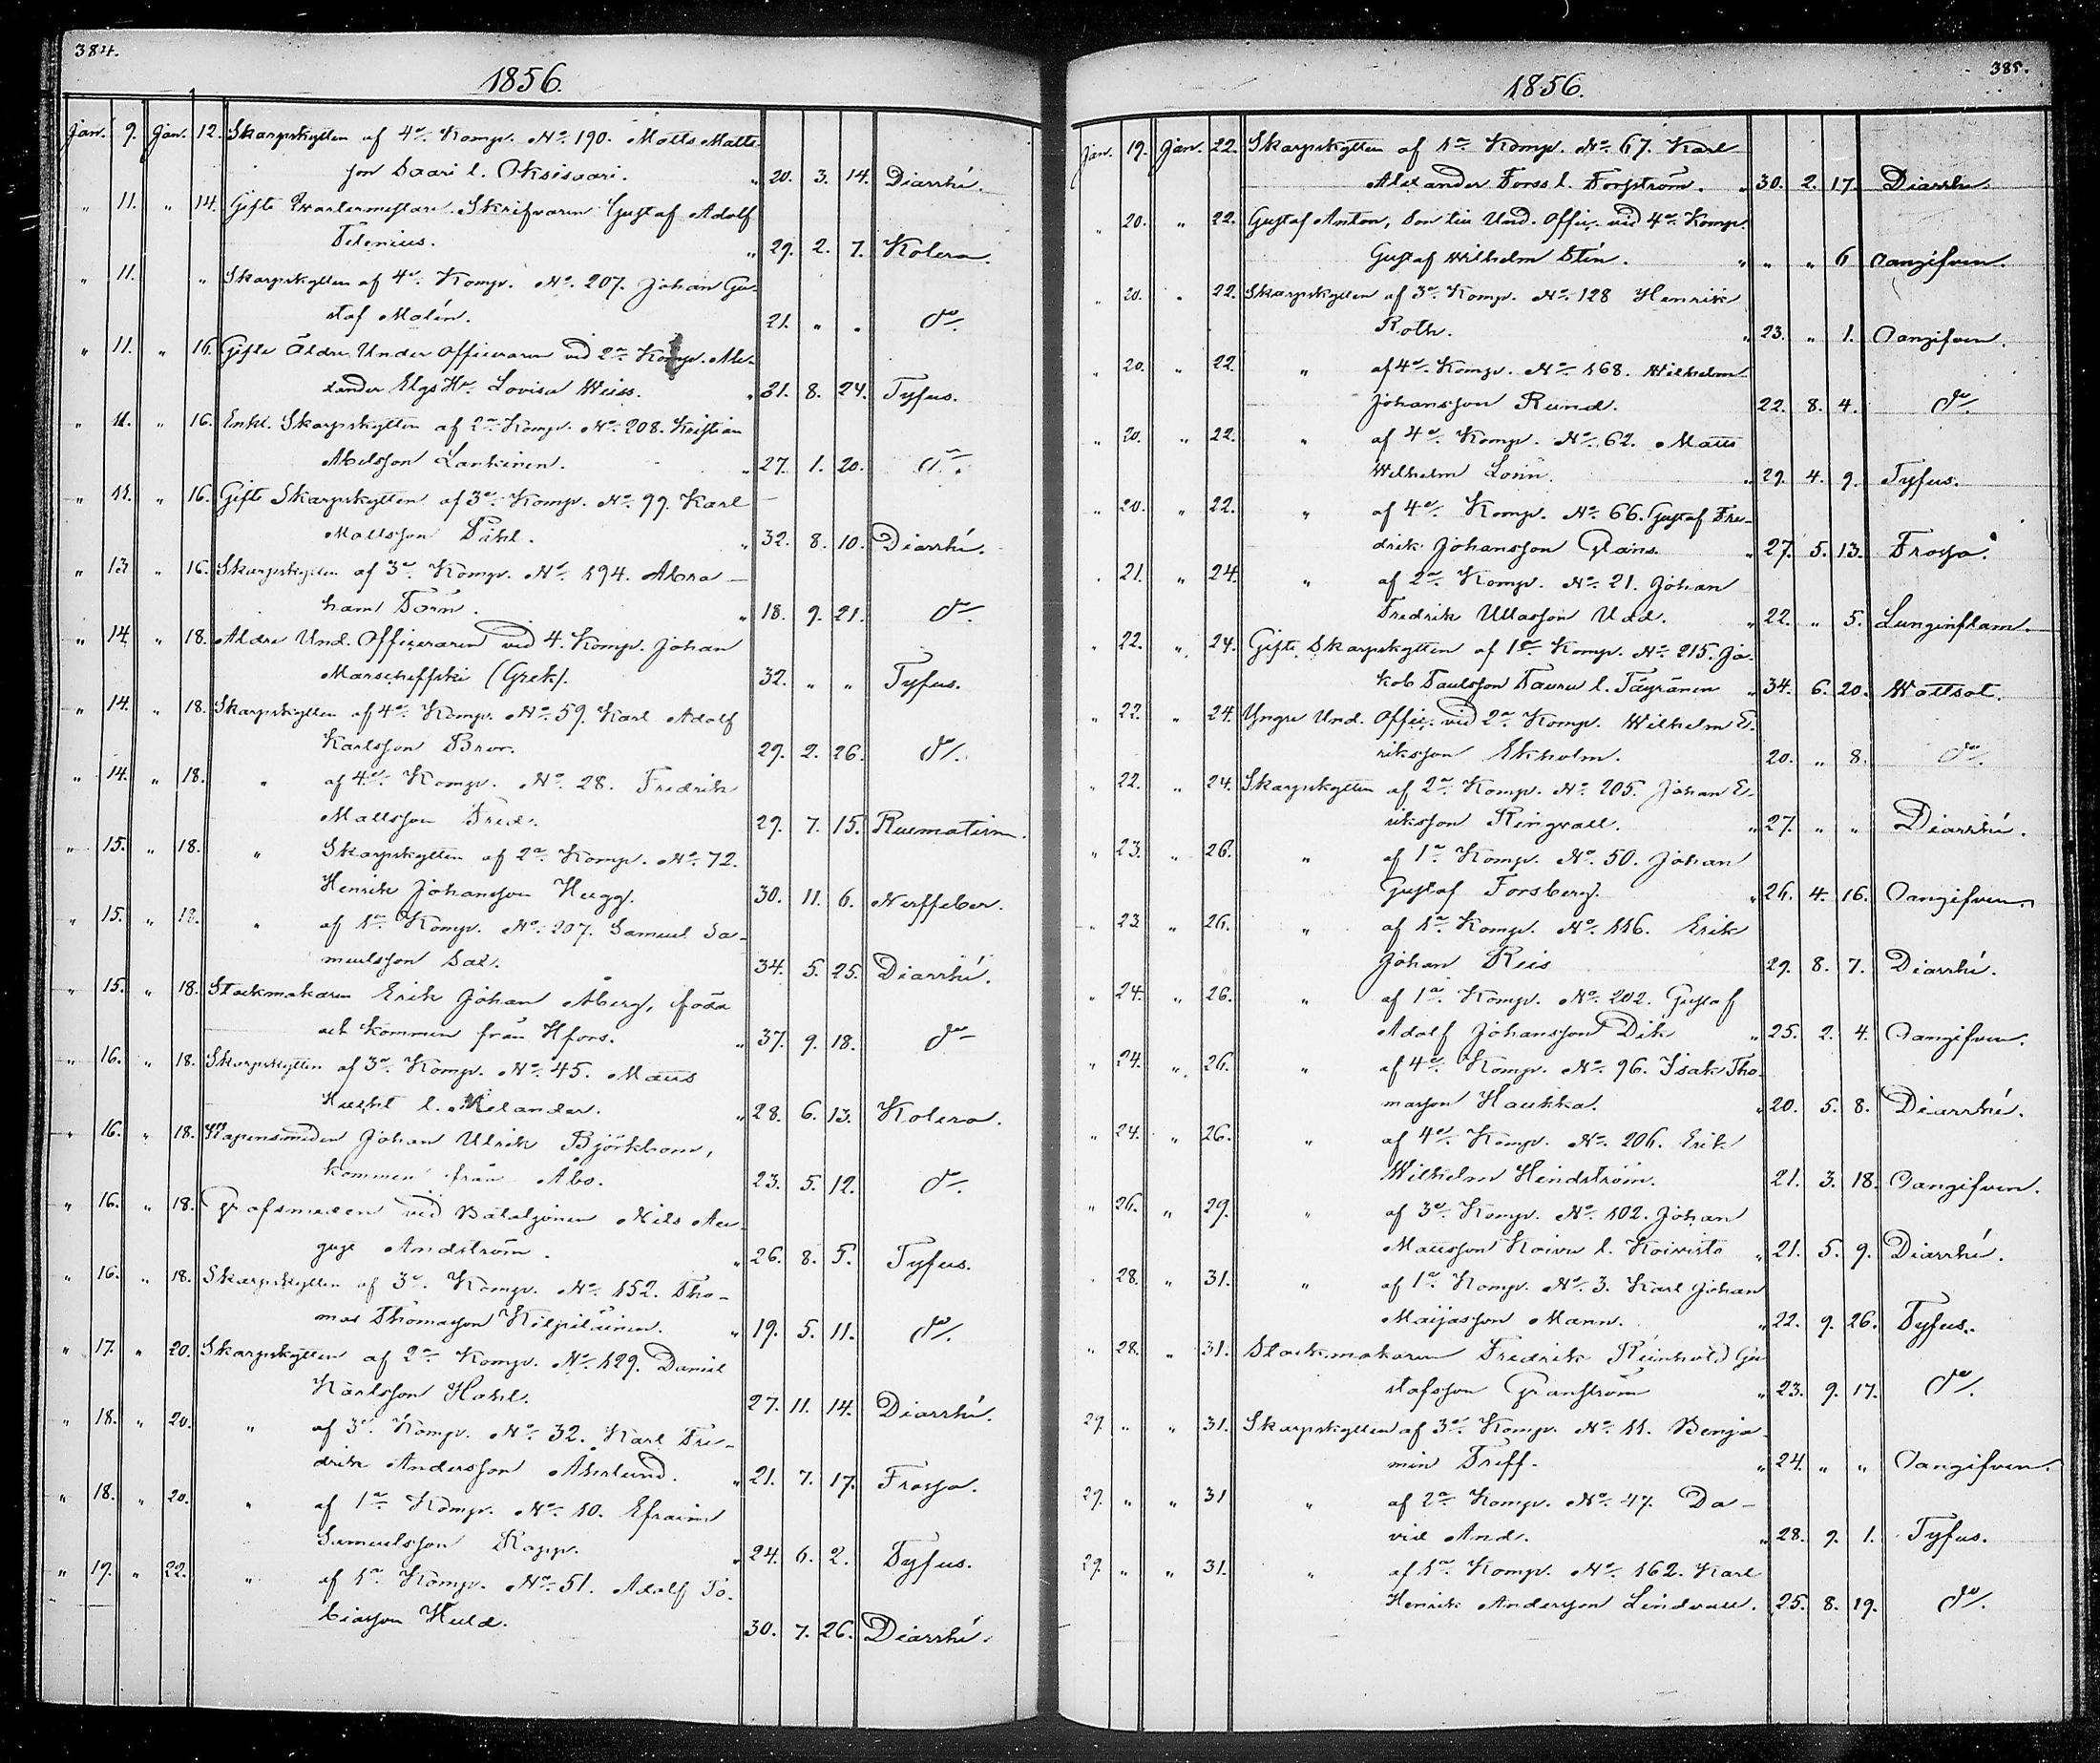 384.
1856.
Jan. 9. Jan. 12. Skarpskytten af 4de Komp. No 190. Matts Matts-
son Saari l. Oksisaari. " 20. 3. 14. Diarrhé.
" 11. " 14. Gifte Qvartermestare Skrifvaren Gustaf Adolf
Telenius. " 29. 2. 7. Kolera.
" 11. " Skarpskytten af 4de Komp. No 207. Johan Gu-
staf Malén. 21. " " do
" 11. " 16. Gifte Äldre Under Officeraren vid 2ra Komp. Ale-
xander Elgs Hu Lovisa Weiss. " 21. 8. 24. Tyfus.
" 11. " 16. Enkl. Skarpskytten af 2ra Komp. No 208. Kristian
Abelsson Lankinen. " 27. 1. 20. do
" 11. " 16. Gifte Skarpskytten af 3de Komp. No 99. Karl
Mattsson Pihl. " 32. 8. 10. Diarrhé.
" 13. " 16. Skarpskytten af 3de Komp. No 194. Abra-
ham Törn. " 18. 9. 21. do
" 14. " 18. Äldre Und. Officeraren vid 4. Komp. Johan
Marscheffski (Grek). 32. " " Tyfus.
" 14. " 18. Skarpskytten af 4de Komp. No 59. Karl Adolf
Karlsson Bror. 29. 2. 26. do
" 14. " 18. " af 4de Komp. No 28. Fredrik
Mattsson Fred. 29. 7. 15. Ruematism.
" 15. " 18. " Skarpskytten af 2ra Komp. No 72.
Henrik Johansson Hugg. 30. 11. 6. Nerffeber.
" 15. " 18. " af 1ra Komp. No 207. Samuel Sa-
muelsson Sax. 34. 5. 25. Diarrhé.
" 15. " 18. Stockmakaren Erik Johan Åberg, född
och kommen från Hfors. " 37. 9. 18. do
" 16. " 18. Skarpskytten af 3de Komp. No 45. Matts
l. Melander. " 28. 6. 13. Kolera.
" 16. " 18. Wapensmeden Johan Ulrik Björkbom,
kommen från Åbo. 23. 5. 12. do
" 16. " 18. Profsmeden vid Bataljonen Nils Au-
gust Andström. " 26. 8. 5. Tyfus.
" 16. " 18. Skarpskytten af 3de Komp. No 152. Tho-
mas Thomasson Kilpiläinen. " 19. 5. 11. do
" 17. " 20. Skarpskytten af 2ra Komp. No 129. Daniel
Karlsson Hahl. 27. 11. 14. Diarrhé.
" 18. " 20. " af 3de Komp. No 32. Karl Fre-
drik Andersson Åkerlund. " 21. 7. 17. Frossa.
" 18. " 20. " af 1ra Komp. No 10. Efraim
Samuelsson Rapp. " 24. 6. 2. Tyfus.
" 19. " 22. " af 1ra Komp. No 51. Adolf To-
biasson Huld. 30. 7. 26. Diarrhé.
385.
1856.
Jan. 19. Jan. 22. Skarpskytten af 1ra Komp. No 67. Karl
Alexander Forss l. Forsström. " 30. 2. 17. Diarrhé.
" 20. " 22. Gustaf Anton, Son till Und. Offic. vid 4de Komp.
Gustaf Wilhelm Stén. " " " 6 Oangifven.
" 20. " 22. Skarpskytten af 3de Komp. No 128 Henrik
Roth. " 23. " 1. Oangifven.
" 20. " 22. " af 4de Komp. No 168. Wilhelm
Johansson Rund. 22. 8. 4. do
" 20. " 22. " af 4de Komp. No 62. Matts
Wilhelm Lönn. " 29. 4. 9. Tyfus.
" 20. " 22. " af 4de Komp. No 66. Gustaf Fre-
drik Johansson Glans. " 27. 5. 13. Frossa.
" 21. " 24. " af 2ra Komp. No 21. Johan
Fredrik Ullasson Udd. " 22. " 5. Lunginflam.
" 22. " 24. Gifte Skarpskytten af 1ra Komp. No 215. Ja-
kob Paulsson Tauru l. Täyränen " 34. 6. 20. Wattsot.
" 22. " 24. Yngre Und. Offic. vid 2ra Komp. Wilhelm E-
riksson Ekholm. 20. " 8. do
" 22. " 24. Skarpskytten af 2ra Komp. No 205. Johan E-
riksson Ringvall. " 27. " " Diarrhé.
" 23. " 26. " af 1ra Komp. No 50. Johan
Gustaf Forsberg. " 26. 4. 16. Oangifven.
" 23 " 26. " af 1ra Komp. No 116. Erik
Johan Reis 29. 8. 7. Diarrhé.
" 24. " 26. " af 1ra Komp. No 202. Gustaf
Adolf Johansson Dik " 25. 2. 4. Oangifven.
" 24. " 26. " af 4de Komp. No 96. Isak Tho-
masson Haukka. " 20. 5. 8. Diarrhé.
" 24. " 26. " af 4de Komp. No 206. Erik
Wilhelm Hindström. 21. 3. 18. Oangifven.
" 26. " 29. " af 3de Komp. No 102. Johan
Mattsson Koivu l. Koivisto " 21. 5. 9. Diarrhé.
" 28. " 31. " af 1ra Komp. No 3. Karl Johan
Maijasson Mann. " 22. 9. 26. Tyfus.
" 28. " 31. Stockmakaren Fredrik Reinhold Gu-
stafsson Granström " 23. 9. 17. do
29. " " 31. Skarpskytten af 3de Komp. No 11. Benja-
min Treff. " 24. " " Oangifven.
29. " " 31 " af 2ra Komp. No 47. Da-
vid And. " 28. 9. 1. Tyfus.
29. " " 31. " af 1ra Komp. No 162. Karl
Henrik Andersson Lindvall. 25. 8. 19. do